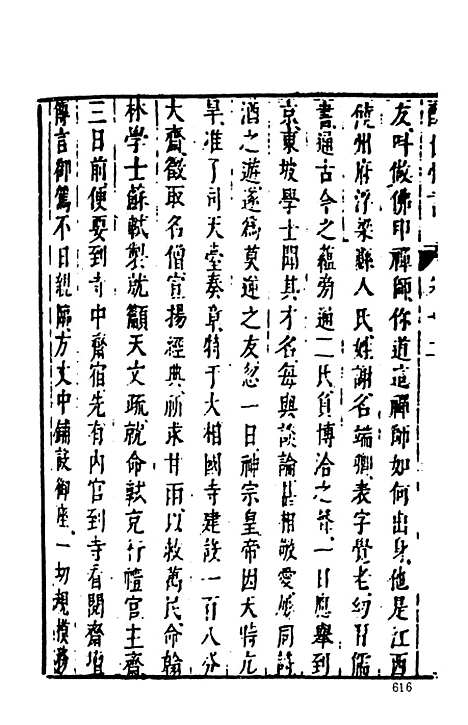 友叫做佛印禪師你道這禪師如何出身他是江西
饒州府浮梁縣人氏姓謝名端卿表字覺老幼習儒
書通古今之蘊旁通二氏負博洽之聲一日應舉到
京東坡學士聞其才名每與談論甚相敬愛屢同詩
酒之遊遂爲莫逆之友忽一日神宗皇帝因天時亢
旱准了司天臺奏章特于大相國寺建設一百八分
大齋徵取名僧宣揚經典祈求甘雨以救萬民命翰
林學士蘇軾製就籲天文疏就命軾充行禮官主齋
三日前便要到寺中齋宿先有內官到寺看閱齋壇
傳言御駕不日親臨方丈中鋪設御座一切規模務
616